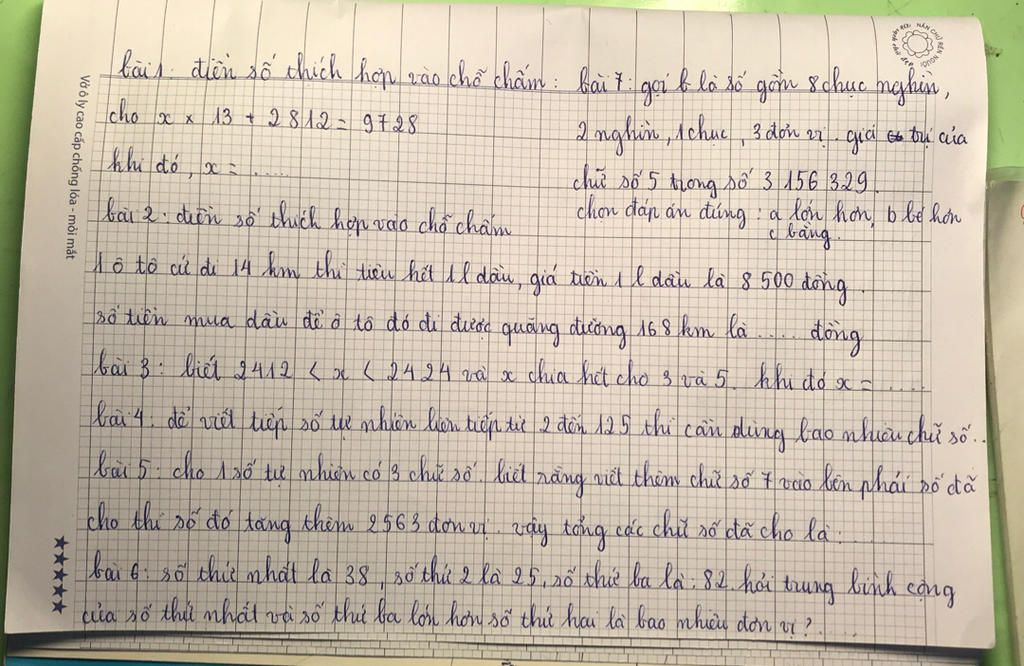 bài 1: điền số thích hợp vào chỗ chấm:
cho x × 13 + 2812 = 9728
khi đó, x = .....
bài 2: điền số thích hợp vào chỗ chấm
1 ô tô cứ đi 14 km thì tiêu hết 1l dầu, giá tiền 1l dầu là 8 500 đồng.
số tiền mua dầu để ô tô đó đi được quãng đường 168 km là .... đồng
bài 3: biết 2412 < x < 2424 và x chia hết cho 3 và 5. khi đó x = .....
bài 4. để viết tiếp số tự nhiên liên tiếp từ 2 đến 125 thì cần dùng bao nhiêu chữ số..
bài 5: cho 1 số tự nhiên có 3 chữ số. biết rằng viết thêm chữ số 7 vào bên phải số đã
cho thì số đó tăng thêm 2563 đơn vị. vậy tổng các chữ số đã cho là:....
bài 6: số thứ nhất là 38, số thứ 2 là 25, số thứ ba là: 82. hỏi trung bình cộng
của số thứ nhất và số thứ ba lớn hơn số thứ hai là bao nhiêu đơn vị?.....
bài 7: gọi b là số gồm 8 chục nghìn,
2 nghìn, 1 chục, 3 đơn vị. giá trị của
chữ số 5 trong số 3 156 329.
chọn đáp án đúng: a lớn hơn, b bé hơn
c bằng.
Vở ô ly cao cấp chống lóa - mỏi mắt
NẮN CHỮ RÈN NGƯỜI